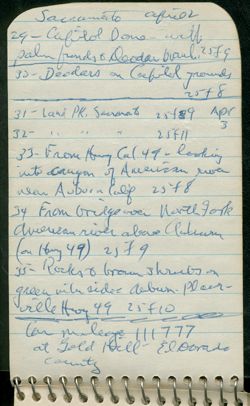 Sacramento April 2
29 - Capitol Dome - with
palm fronds & Deodar branch. 25f9
30 - Deodars on Capitol grounds
25f8
31 - Land Pk. Sacramento 25f89 Apr
32 - " " " 25f11 3
33 - From Hwy Cal 49 - looking
into canyon of American river
near Auburn Calif 25f8
34 From bridge over North Fork
American river above Auburn
(on Hwy 49) 25f9
35 - Rocks & brown shrubs on
green hillside Auburn-Placer-
ville Hwy 49 25f10
Car mileage 111777
at Gold Hill - El Dorado
County